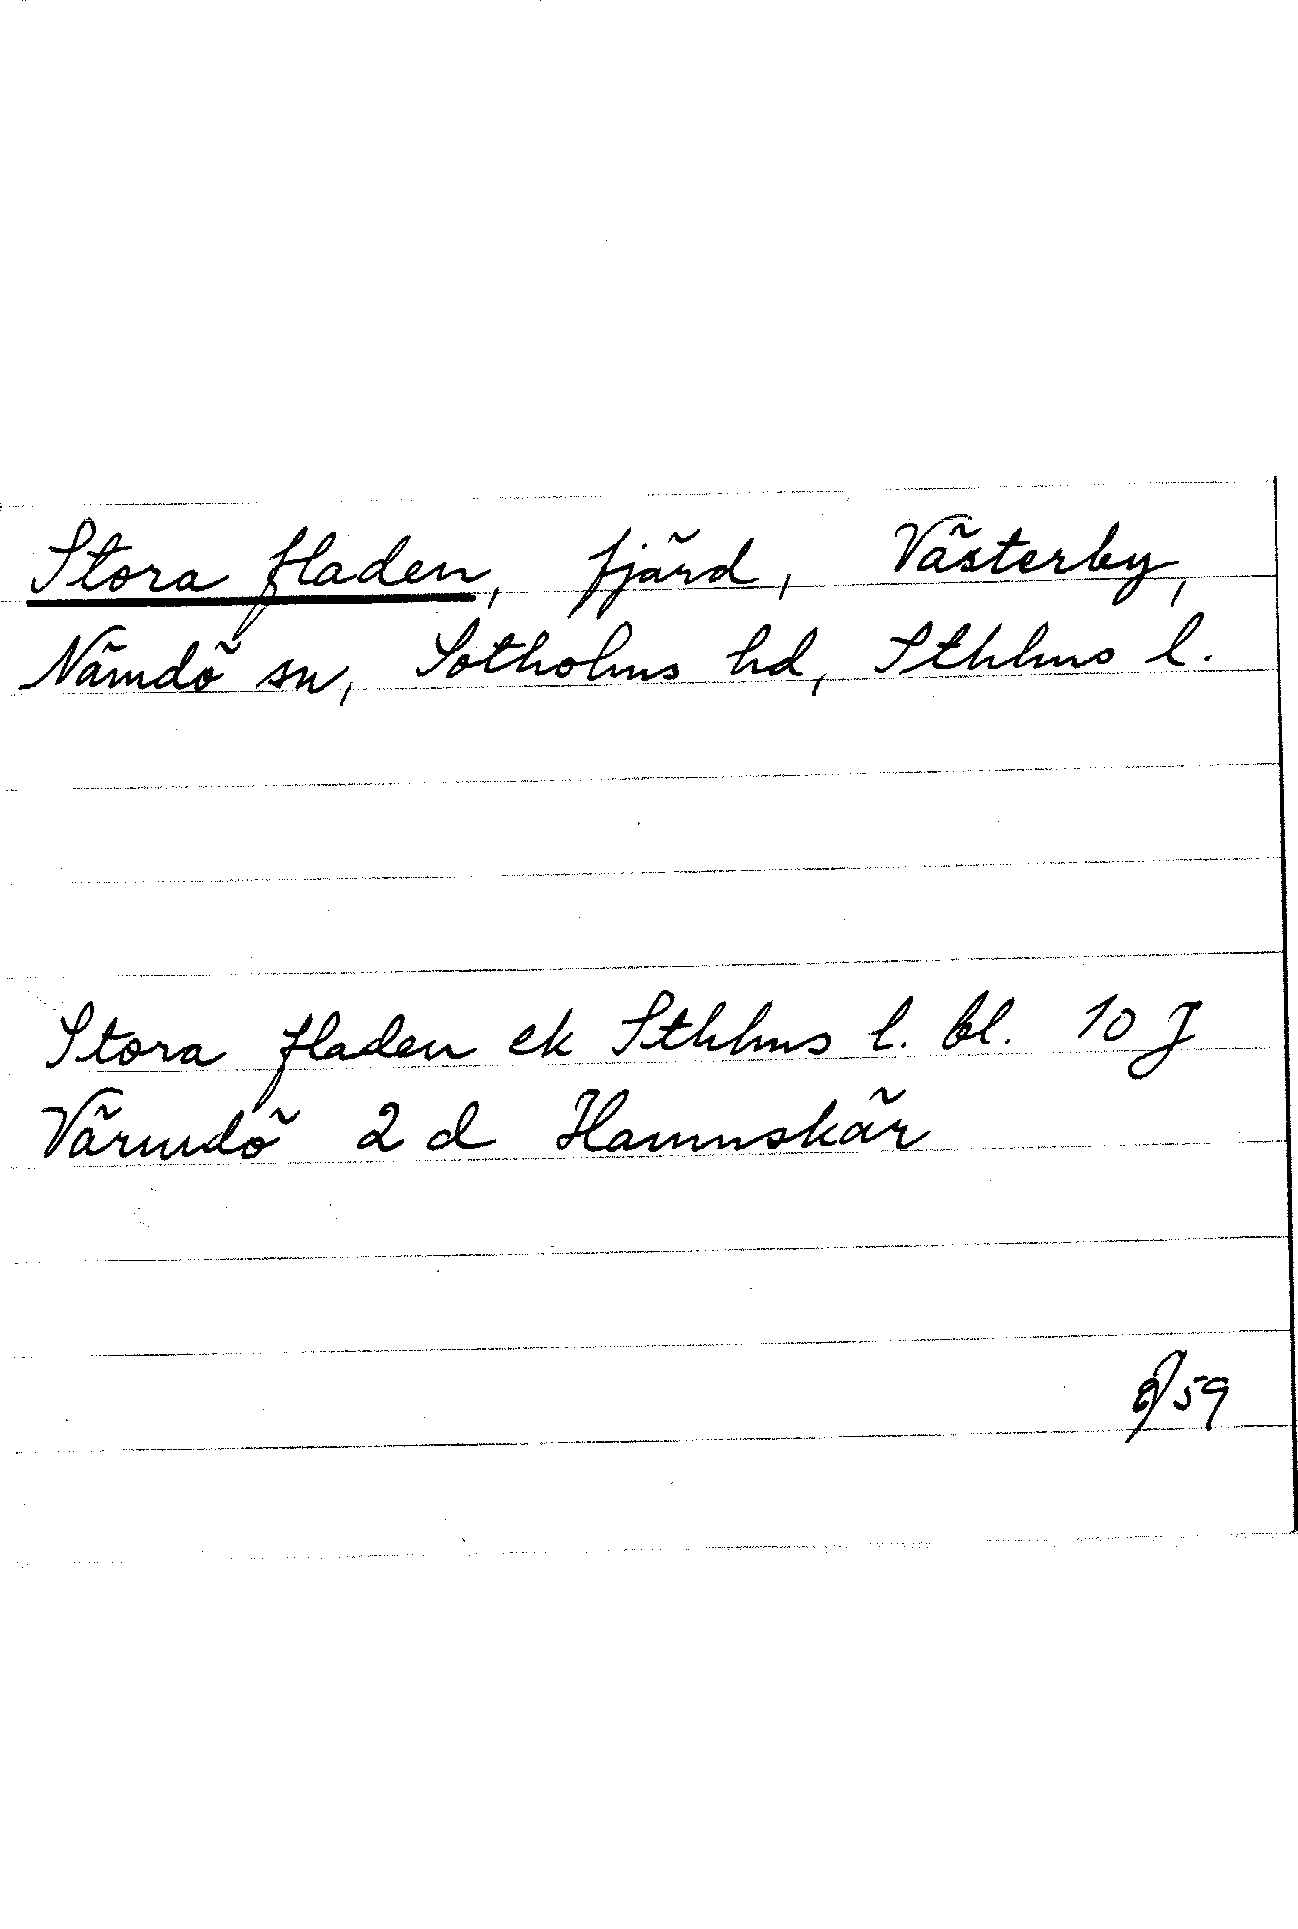 Stora fladen, fjärd, Västerby,
Nämdö sn, Sotholms hd, Sthlms l.
Stora fladen ek Sthlms l. bl. 10 J
Värmdö 2 d Hamnskär
59